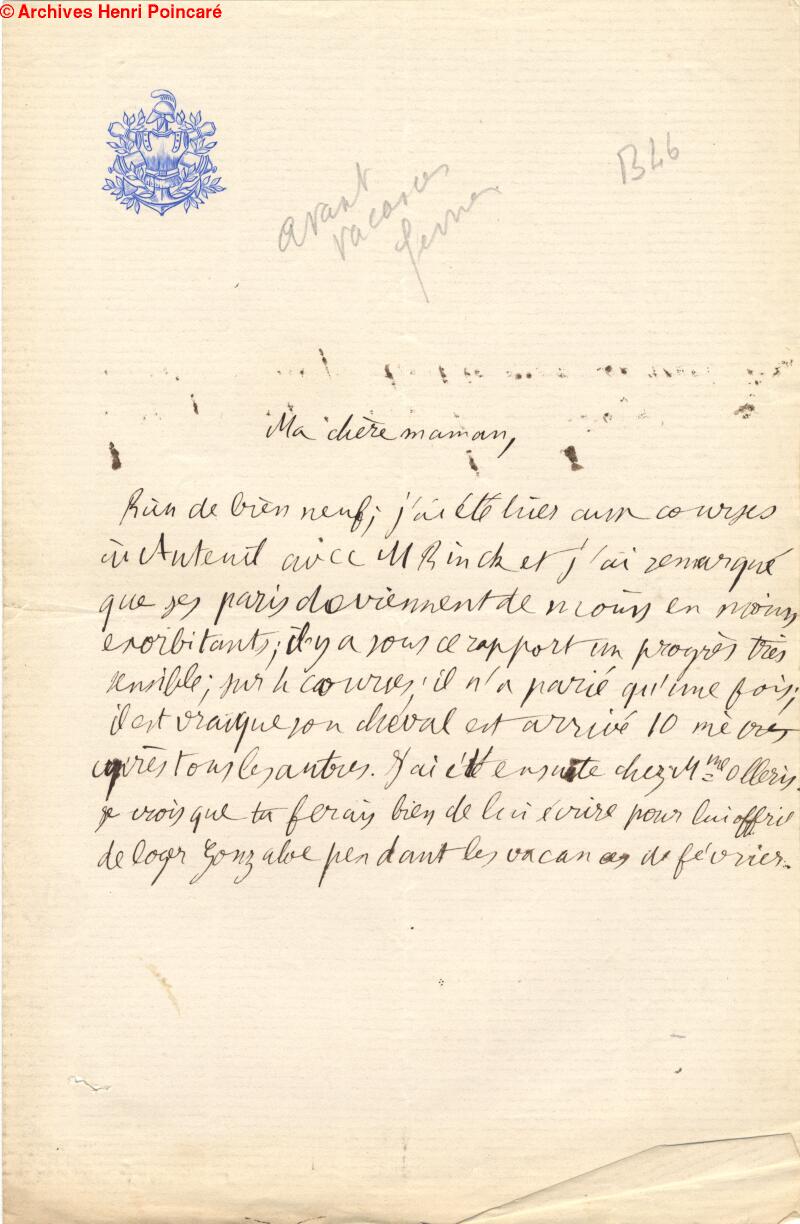 © Archives Henri Poincaré
B46
avant
vacances
Ma chère maman,
Rien de bien neuf; j'ai été hier aux courses
à Auteuil avec M Rinck et j'ai remarqué
que ses paris deviennent de moins en moins
exorbitants; il y a sous ce rapport un progrès très
sensible; sur 4 courses, il n'a parié qu'une fois;
il est vrai que son cheval est arrivé 10 mètres
après tous les autres. J'ai été ensuite chez Mme Olleris.
je crois que tu ferais bien de lui écrire pour lui offrir
de loger Gonzalve pendant les vacances de février.